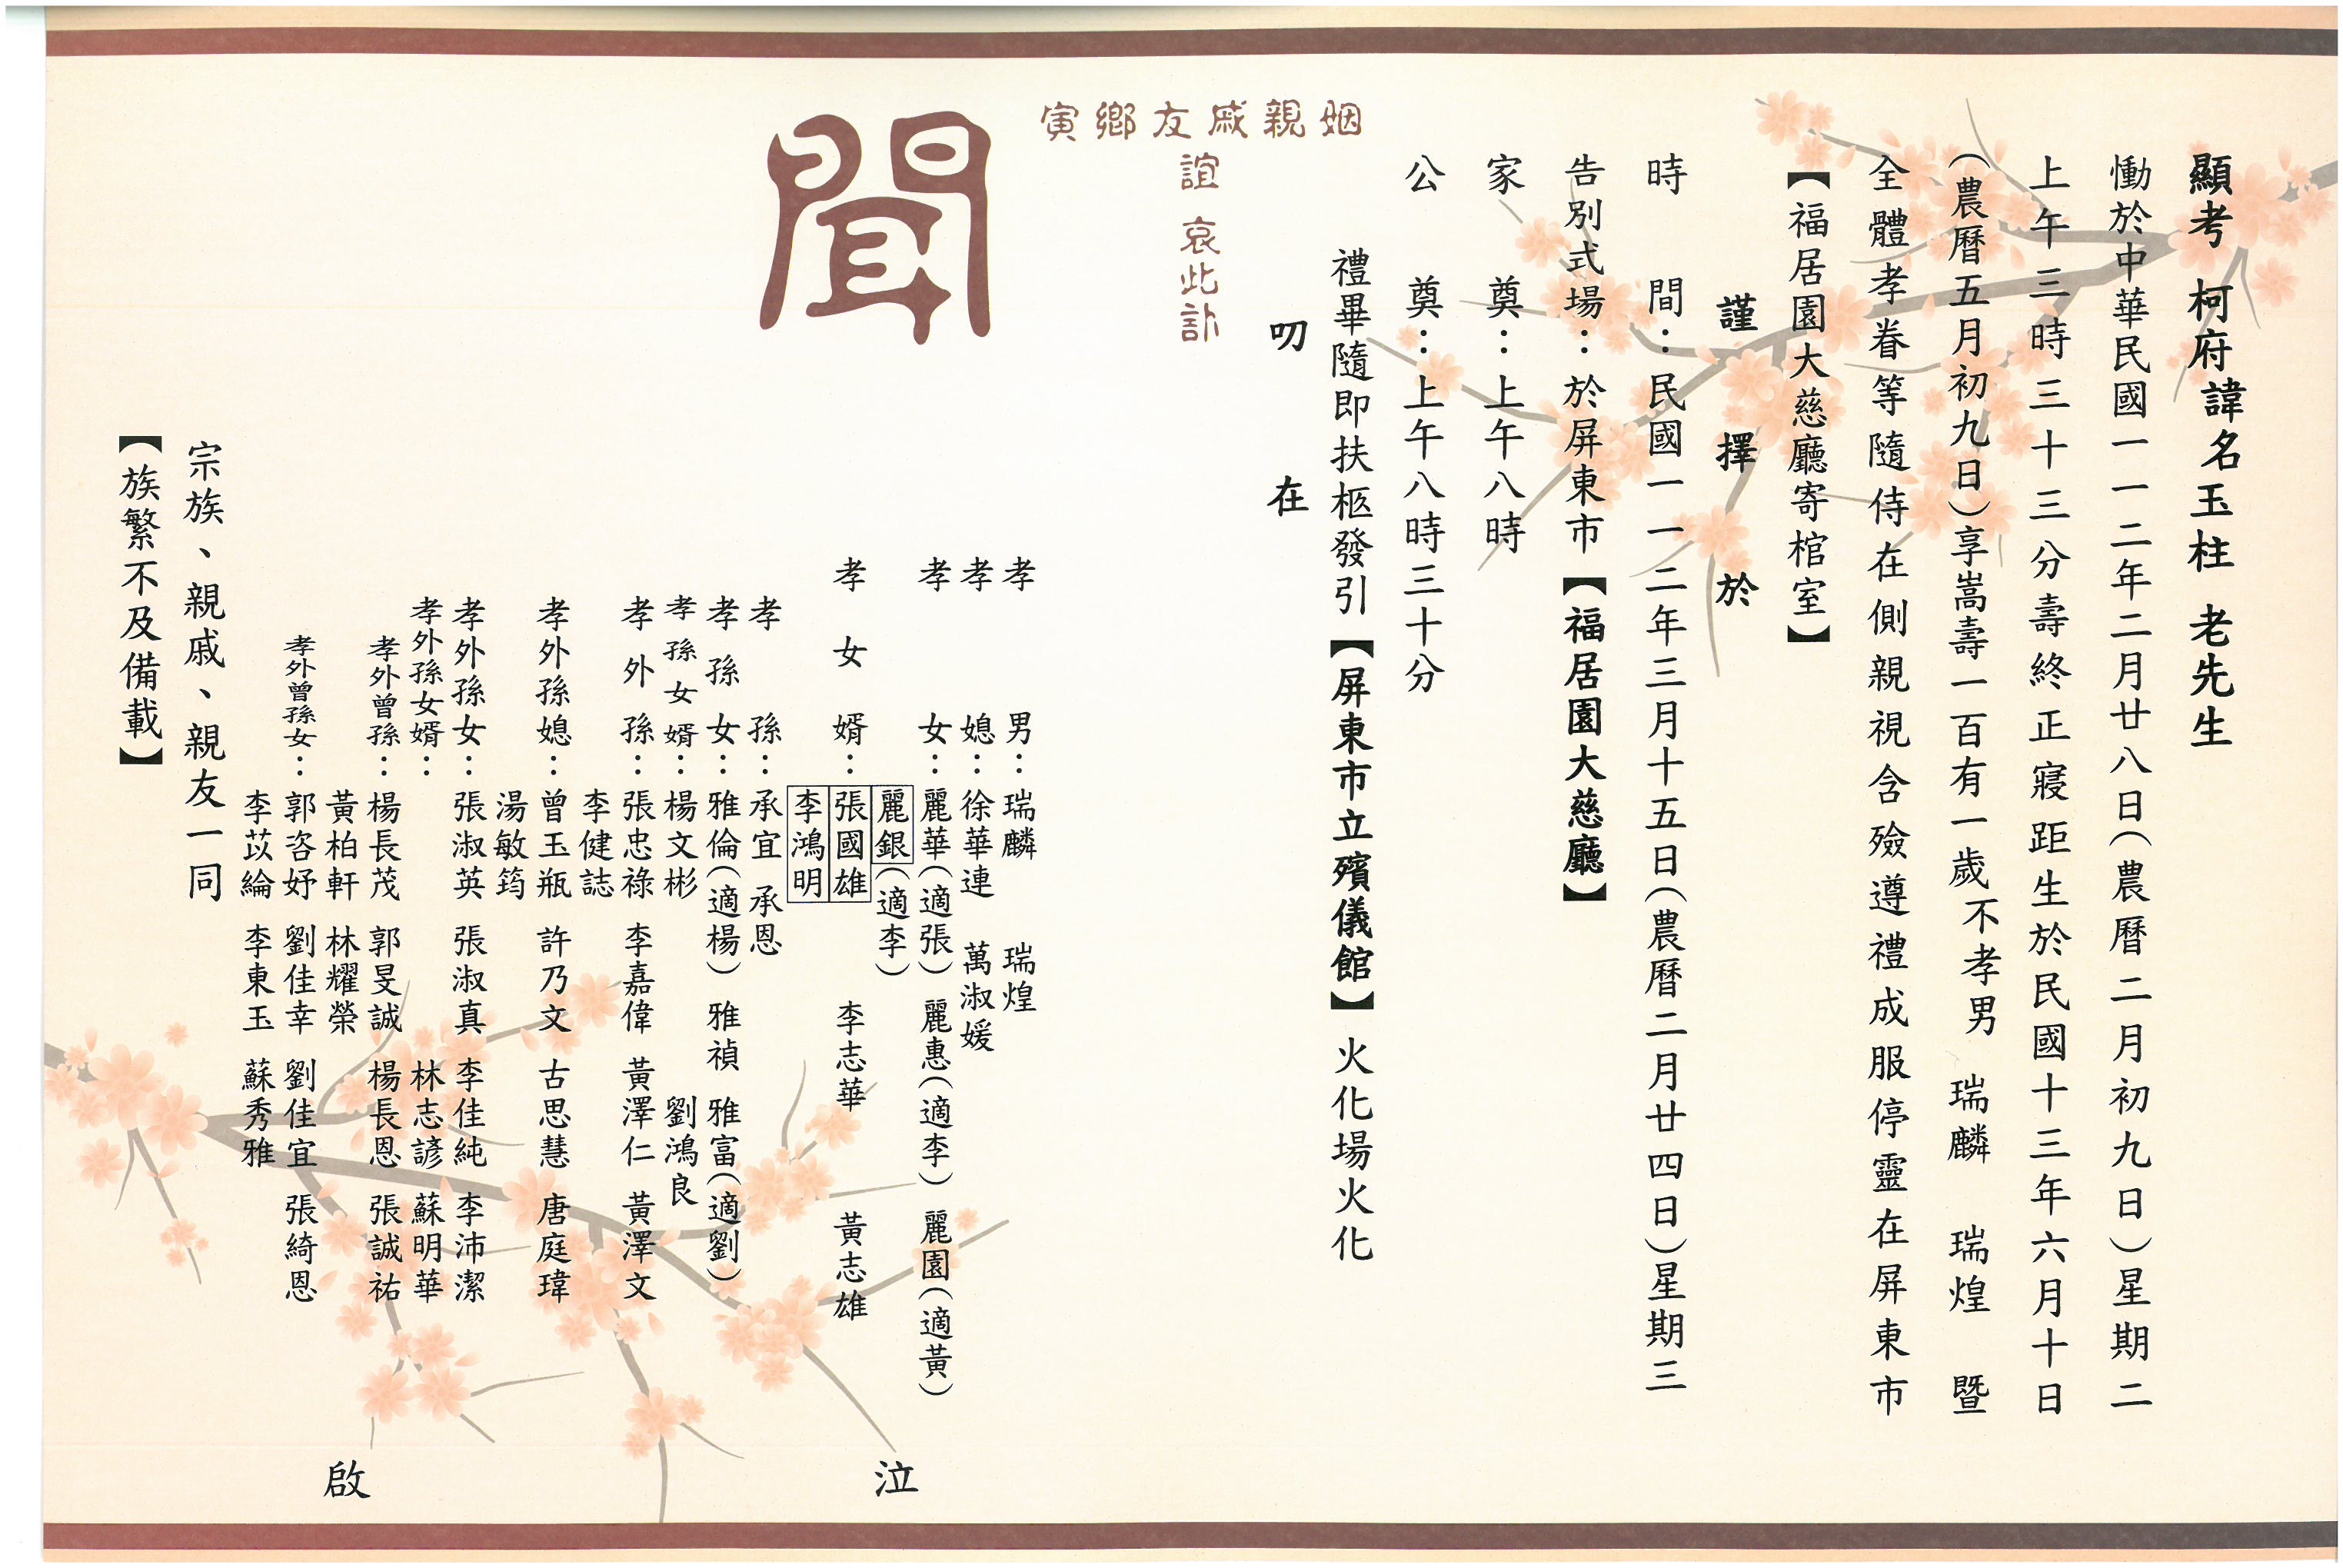 顯考 柯府諱名玉柱 老先生
慟於中華民國一一二年二月廿八日(農曆二月初九日)星期二
上午三時三十三分壽終正寢距生於民國十三年六月十日
(農曆五月初九日)享嵩壽一百有一歲不孝男 瑞麟 瑞煌 暨
全體孝眷等隨侍在側親視含殮遵禮成服停靈在屏東市
【福居園大慈廳寄棺室】
謹擇於
時間：民國一一二年三月十五日(農曆二月廿四日)星期三
告別式場：於屏東市【福居園大慈廳】
家奠：上午八時
公奠：上午八時三十分
禮畢隨即扶柩發引【屏東市立殯儀館】火化場火化
叨在
姻親戚友鄉寅
誼 哀此訃
聞
孝男：瑞麟 瑞煌
孝媳：徐華連 萬淑媛
孝女：麗華(適張) 麗惠(適李) 麗園(適黃)
麗銀(適李)
孝女婿：張國雄 李志華 黃志雄
李鴻明
孝孫：承宜 承恩
孝孫女：雅倫(適楊) 雅禎 雅富(適劉)
孝孫女婿：楊文彬 劉鴻良
孝外孫：張忠祿 李嘉偉 黃澤仁 黃澤文
李健誌
孝外孫媳：曾玉瓶 許乃文 古思慧 唐庭瑋
湯敏筠
孝外孫女：張淑英 張淑真 李佳純 李沛潔
孝外孫女婿： 林志諺 蘇明華
孝外曾孫：楊長茂 郭旻誠 楊長恩 張誠祐
黃柏軒 林耀榮
孝外曾孫女：郭咨妤 劉佳幸 劉佳宜 張綺恩
李苡綸 李東玉 蘇秀雅
宗族、親戚、親友一同
【族繁不及備載】
泣
啟